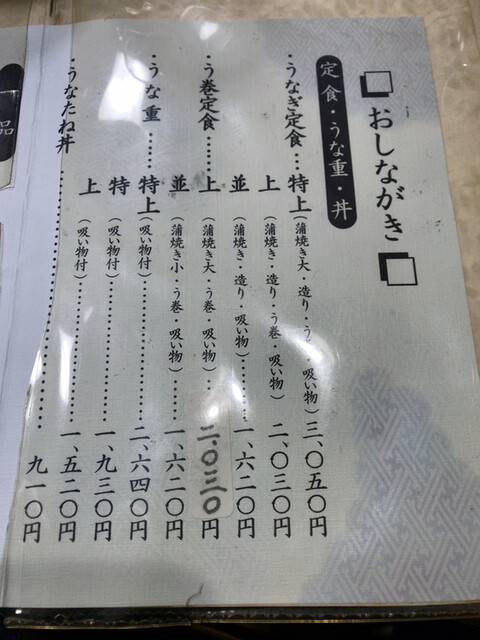 おしながき
定食・うな重・丼
・うなぎ定食…特上（蒲焼き大・造り・う・吸い物）三、〇五〇円
上（蒲焼き・造り・う巻・吸い物）二、〇三〇円
並（蒲焼き・造り・吸い物）…………一、六二〇円
・う巻定食……上（蒲焼き大・う巻・吸い物）…二、〇三〇円
並（蒲焼き小・う巻・吸い物）……一、六二〇円
・うな重……特上（吸い物付）…………………二、六四〇円
特（吸い物付）…………………一、九三〇円
上（吸い物付）…………………一、五二〇円
・うなたね丼……………………………九一〇円
品